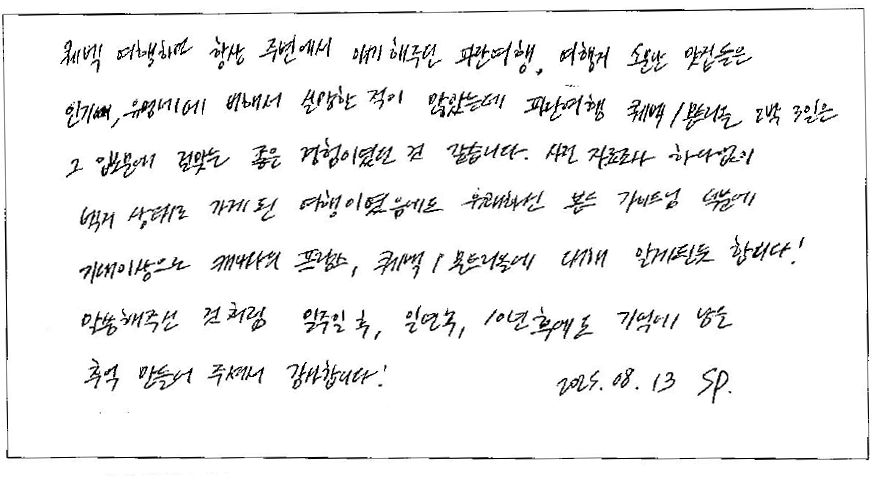 퀘벡 여행하면 항상 주변에서 얘기해주던 파란여행, 여행지 소문난 맛집들은
인기에, 유명세에 비해서 실망한 적이 많았는데 파란여행 퀘벡/몬트리올 2박 3일은
그 입소문에 걸맞는 좋은 경험이였던 것 같습니다. 사전 자료조사 하나없이
백지 상태로 가게 된 여행이였음에도 유쾌하신 본드 가이드님 덕분에
기대이상으로 캐나다의 프랑스, 퀘벡/몬트리올에 대해 알게된듯 합니다!
말씀해주신 것처럼 일주일 후, 일년후, 10년 후에도 기억에 남는
추억 만들어 주셔서 감사합니다!
2025.08.13 SP.